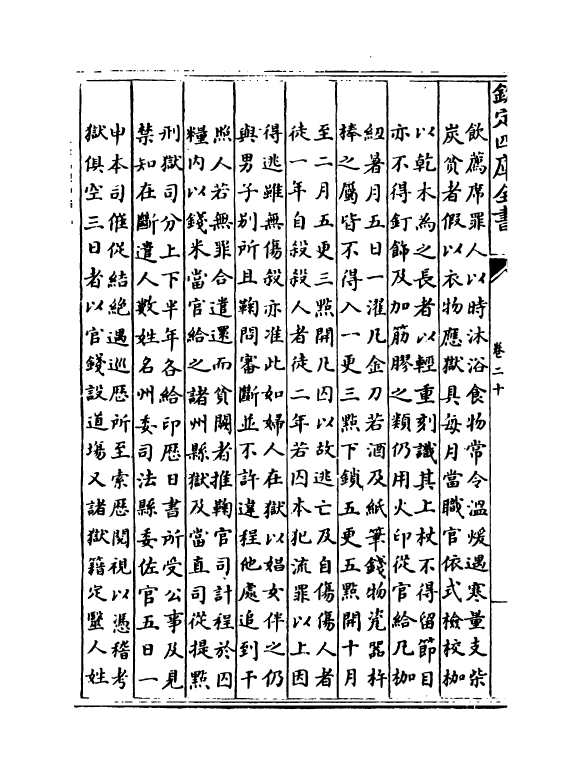 欽定四庫全書
卷二十
飲薦席罪人以時沐浴食物常令溫煖遇寒量支柴
炭貧者假以衣物應獄具每月當職官依式檢校枷
以乾木為之長者以輕重刻識其上杖不得留節目
亦不得釘飾及加筋膠之類仍用火印從官給凡枷
紐暑月五日一濯凡金刀若酒及紙筆錢物瓷器杵
棒之屬皆不得入一更三點下鎖五更五點開十月
至二月五更三點開凡囚以故逃亡及自傷傷人者
徒一年自殺殺人者徒二年若囚本犯流罪以上因
得逃雖無傷殺亦准此如婦人在獄以娼女伴之仍
與男子别所且鞠問審斷並不許違程他處追到干
照人若無罪合遣還而貧闕者推鞠官司計程於囚
糧内以錢米當官給之諸州縣獄及當直司從提點
刑獄司分上下半年各給印歷日書所受公事及見
禁知在斷遣人數姓名州委司法縣委佐官五日一
申本司催促結絶遇巡歷所至索歷閱視以憑稽考
獄俱空三日者以官錢設道場又諸獄籍定毉人姓